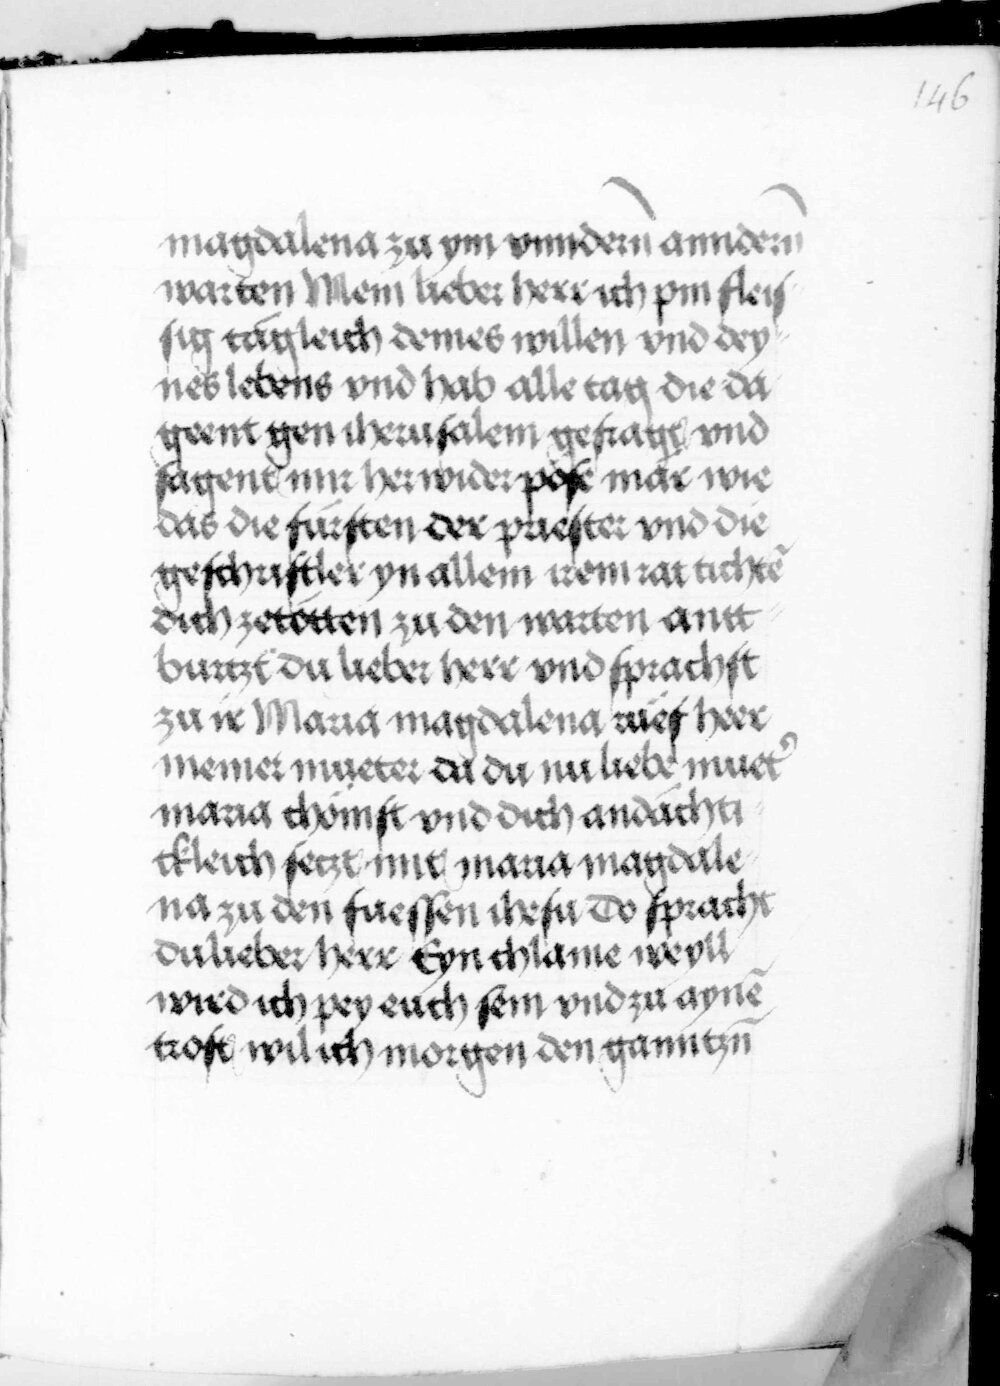 146
magdalena zu ym vnndern̄ anndern̄
warten Mein lieber herr ich pin fleis⸗
sig tägleich deines willen vnd dey⸗
nes lebens vnd hab alle tag die da
geent gen iherusalem gefragt vnd
sagent mir herwider pöse mär wie
das die fürsten der priester vnd die
geschriftler yn allem irem rat tichtē
dich zetötten zu den warten antt⸗
burtzt du lieber herr vnd sprachst
zu ir Maria magdalena rüef heer
meiner mueter da du nu liebe muet᾽
maria chömst vnd dich andächti⸗
ckleich setzt mit maria magdale⸗
na zu den fuessen ihesu Do spracht
du lieber herr Eyn chlaine weyll
wird ich pey euch sein vnd zu aynē
trost wil ich morgen den ganntzn̄